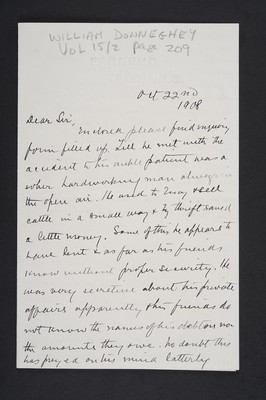 WILLIAM DONNEGHEY
VOL 15/2 PAGE 209
Oct 22nd
1908
Dear Sir,
Enclosed please find enquiry
form filled up. Till he met with the
accident to his ankle patient was a
sober hardworking man always in
the open air. He used to buy & sell
cattle in a small way & by thrift saved
a little money. Some of this he appears to
have lent & as far as his friends
know without proper security. He
was very secretive about his private
affairs apparently & his friends do
not know the names of his debtors nor
the amounts they owe. No doubt this
has preyed on his mind latterly